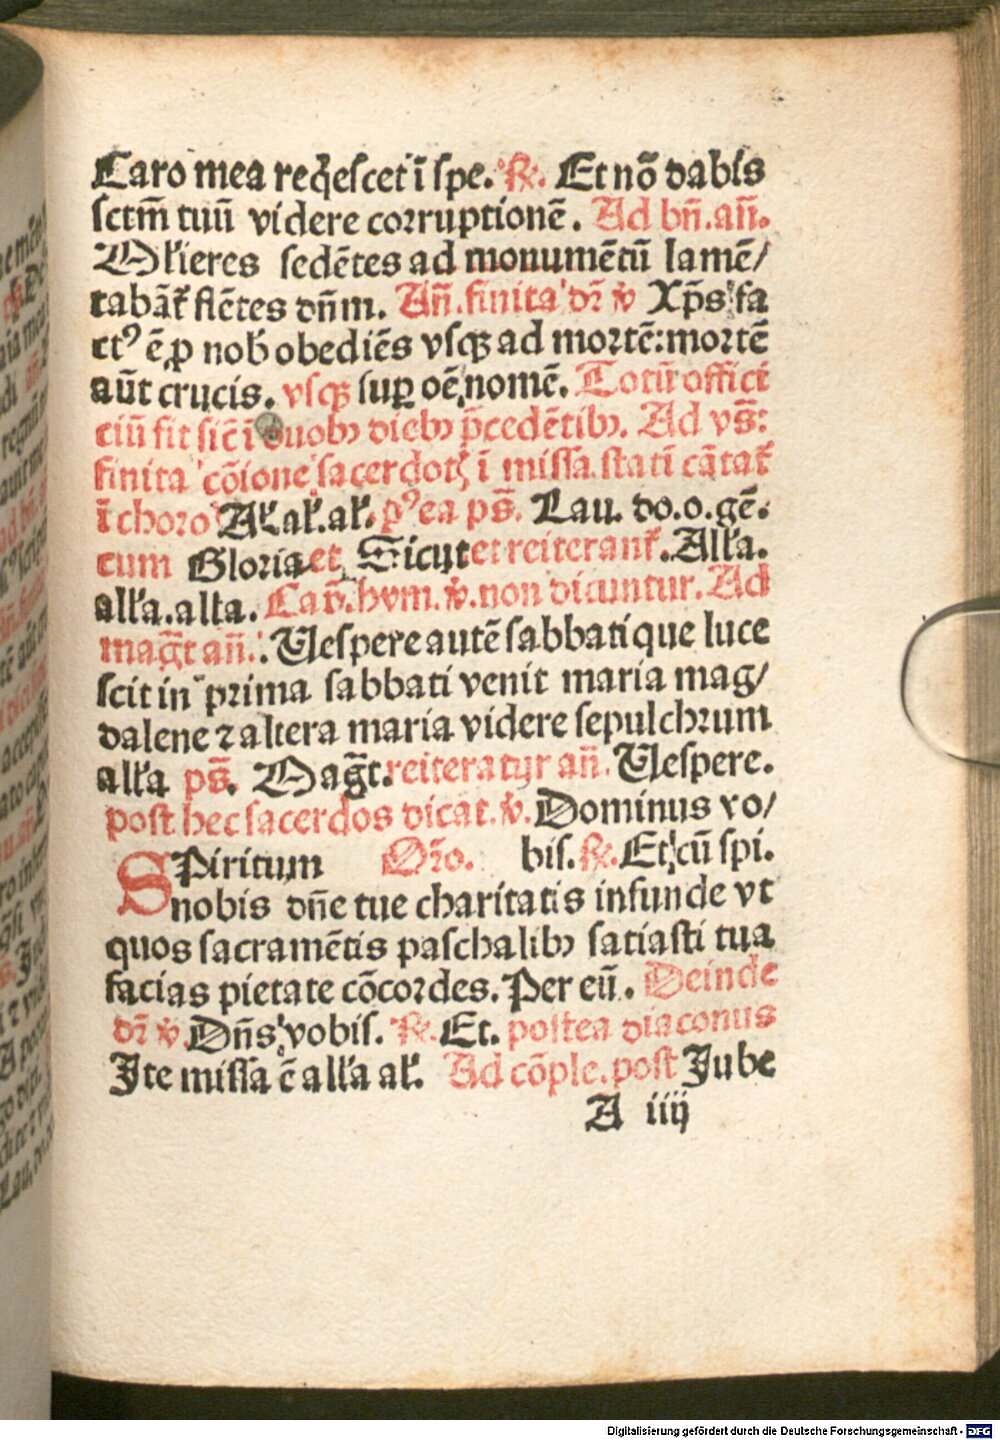 Caro mea reqͥescet ī spe. ℟. Et nō dabis
sctm̄ tuū videre corruptionē. Ad bn̄. an̄.
Mƚieres sedētes ad monumētū lamē/
tabāt᷑ flētes dn̄m. An̄. finita dr̄ ℣ Xp̄s fa
ctꝰ ē ꝓ nob̄ obediēs vsqꝫ ad mortē: mortē
aūt crucis. vsqꝫ suꝑ oē nomē. Totū offici
ciū fit sič ī duobꝫ diebꝫ p̄cedētibꝫ. Ad vs̄:
finita cōione sacerdotꝭ ī missa stati cātat᷑
ī choro Aƚ. aƚ. aƚ. pꝰea ps̄. Lau. do. o. gē.
cum Gloria et Sicut et reiterant᷑. Alƚa.
alƚa. alƚa. Cap̄. hym. ℣. non dicuntur. Ad
mag̃t an̄. Uespere autē sabbati que luce
scit in prima sabbati venit maria mag/
dalene ⁊ altera maria videre sepulchrum
alƚa ps̄. Mag̃t. reiteratur an̄. Uespere.
post hec sacerdos dicat. ℣. Dominus vo/
bis. ℟. Et cū spi.
Oro̅.
SPiritum
nobis dn̄e tue charitatis infunde vt
quos sacramētis paschalibꝫ satiasti tua
facias pietate cōcordes. Per eū. Deinde
dr̄ ℣. Dn̄s vobis. ℟. Et. postea diaconus
Ite missa ē alƚa aƚ. Ad cōple. post Iube
A iiij
Digitalisierung gefördert durch die Deutsche Forschungsgemeinschaft - DFG